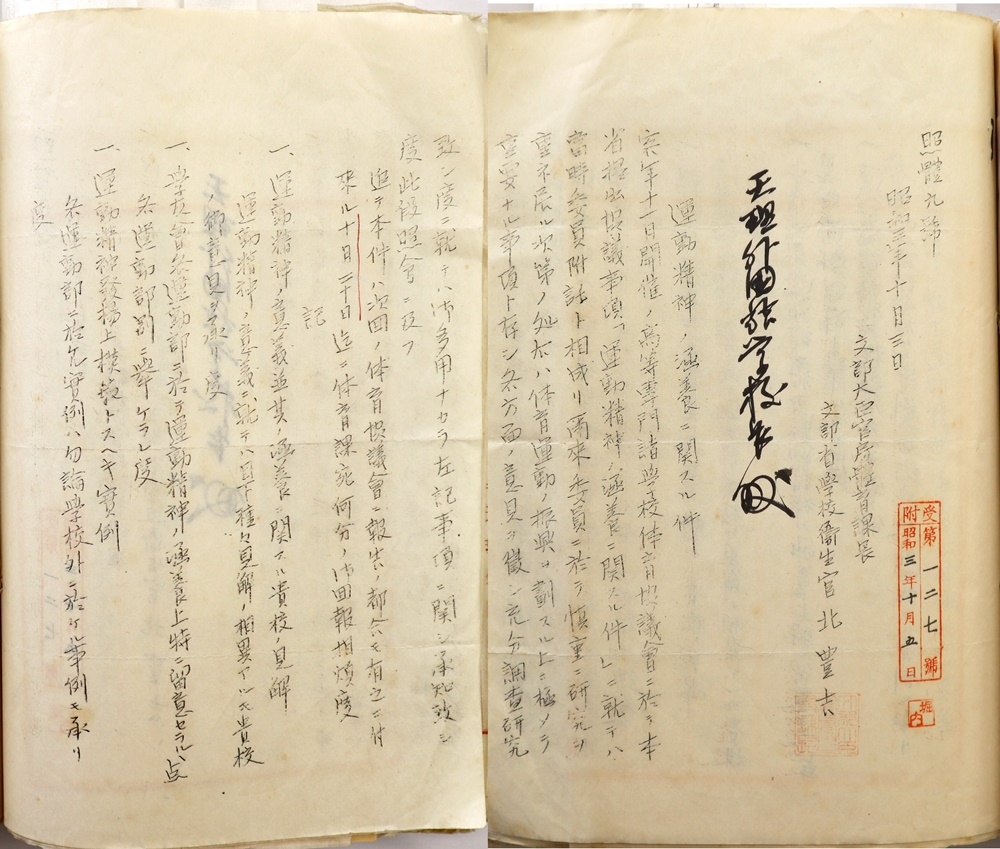 照體九號
昭和三年十月三日
文部大臣官房體育課長
文部省學校衞生官 北 豐吉
受第一二七號
附昭和三年十月五日
堀内
天理外国語学校長 殿
運動精神ノ涵養ニ関スル件
客年十一月開催ノ高等專門諸學校体育協議會ニ於テ本
省提出協議事項「運動精神ノ涵養ニ関スル件」ニ就テハ
當時委員附託ト相成リ爾來委員ニ於テ慎重ニ研究ヲ
重ネ居ル次第ノ処右ハ体育運動ノ振興ヲ劃スル上ニ極メテ
重要ナル事項ト存シ各方面ノ意見ヲ徴シ充分調査研究
致シ度ニ就テハ御多用ナカラ左記事項ニ関シ承知致シ
度此段照會ニ及フ
追テ本件ハ次回ノ体育協議會ニ報告ノ都合モ有之ニ付
來ル十月二十日迄ニ体育課宛何分ノ御回報相煩度
記
一、運動精神ノ意義並其ノ涵養ニ関スル貴校ノ見解
運動精神ノ意義ニ就テハ目下種々見解ノ相異アルモ貴校
ノ御意見ヲ承リ度
一、學友會各運動部ニ於テ運動精神ノ涵養上特ニ留意セラルル点
各運動部別ニ舉ケラレ度
一、運動精神發揚上模範トスヘキ實例
各運動部ニ於ケル實例ハ勿論學校外ニ於ケル事例モ承リ
度